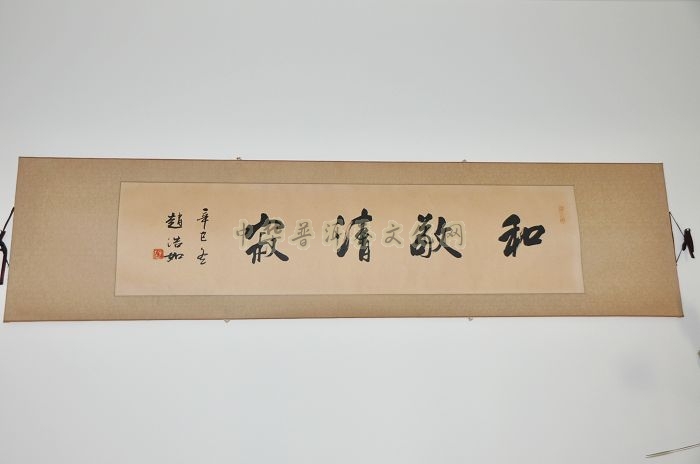 和敬清寂
辛巳冬
趙浩如
中华普洱茶文化网